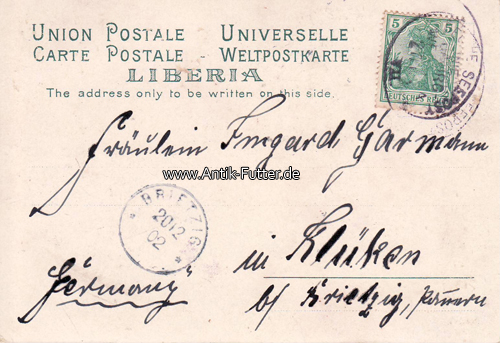 UNION POSTALE UNIVERSELLE
CARTE POSTALE - WELTPOSTKARTE
LIBERIA
The address only to be written on this side.
5 5
DEUTSCHES REICH
SEEPOST
Fräulein Irmgard Garmann
www.Antik-Futter.de
BRIETZIG
20 12
02
in Klüken
Germany
b/ Brietzig, Pommern